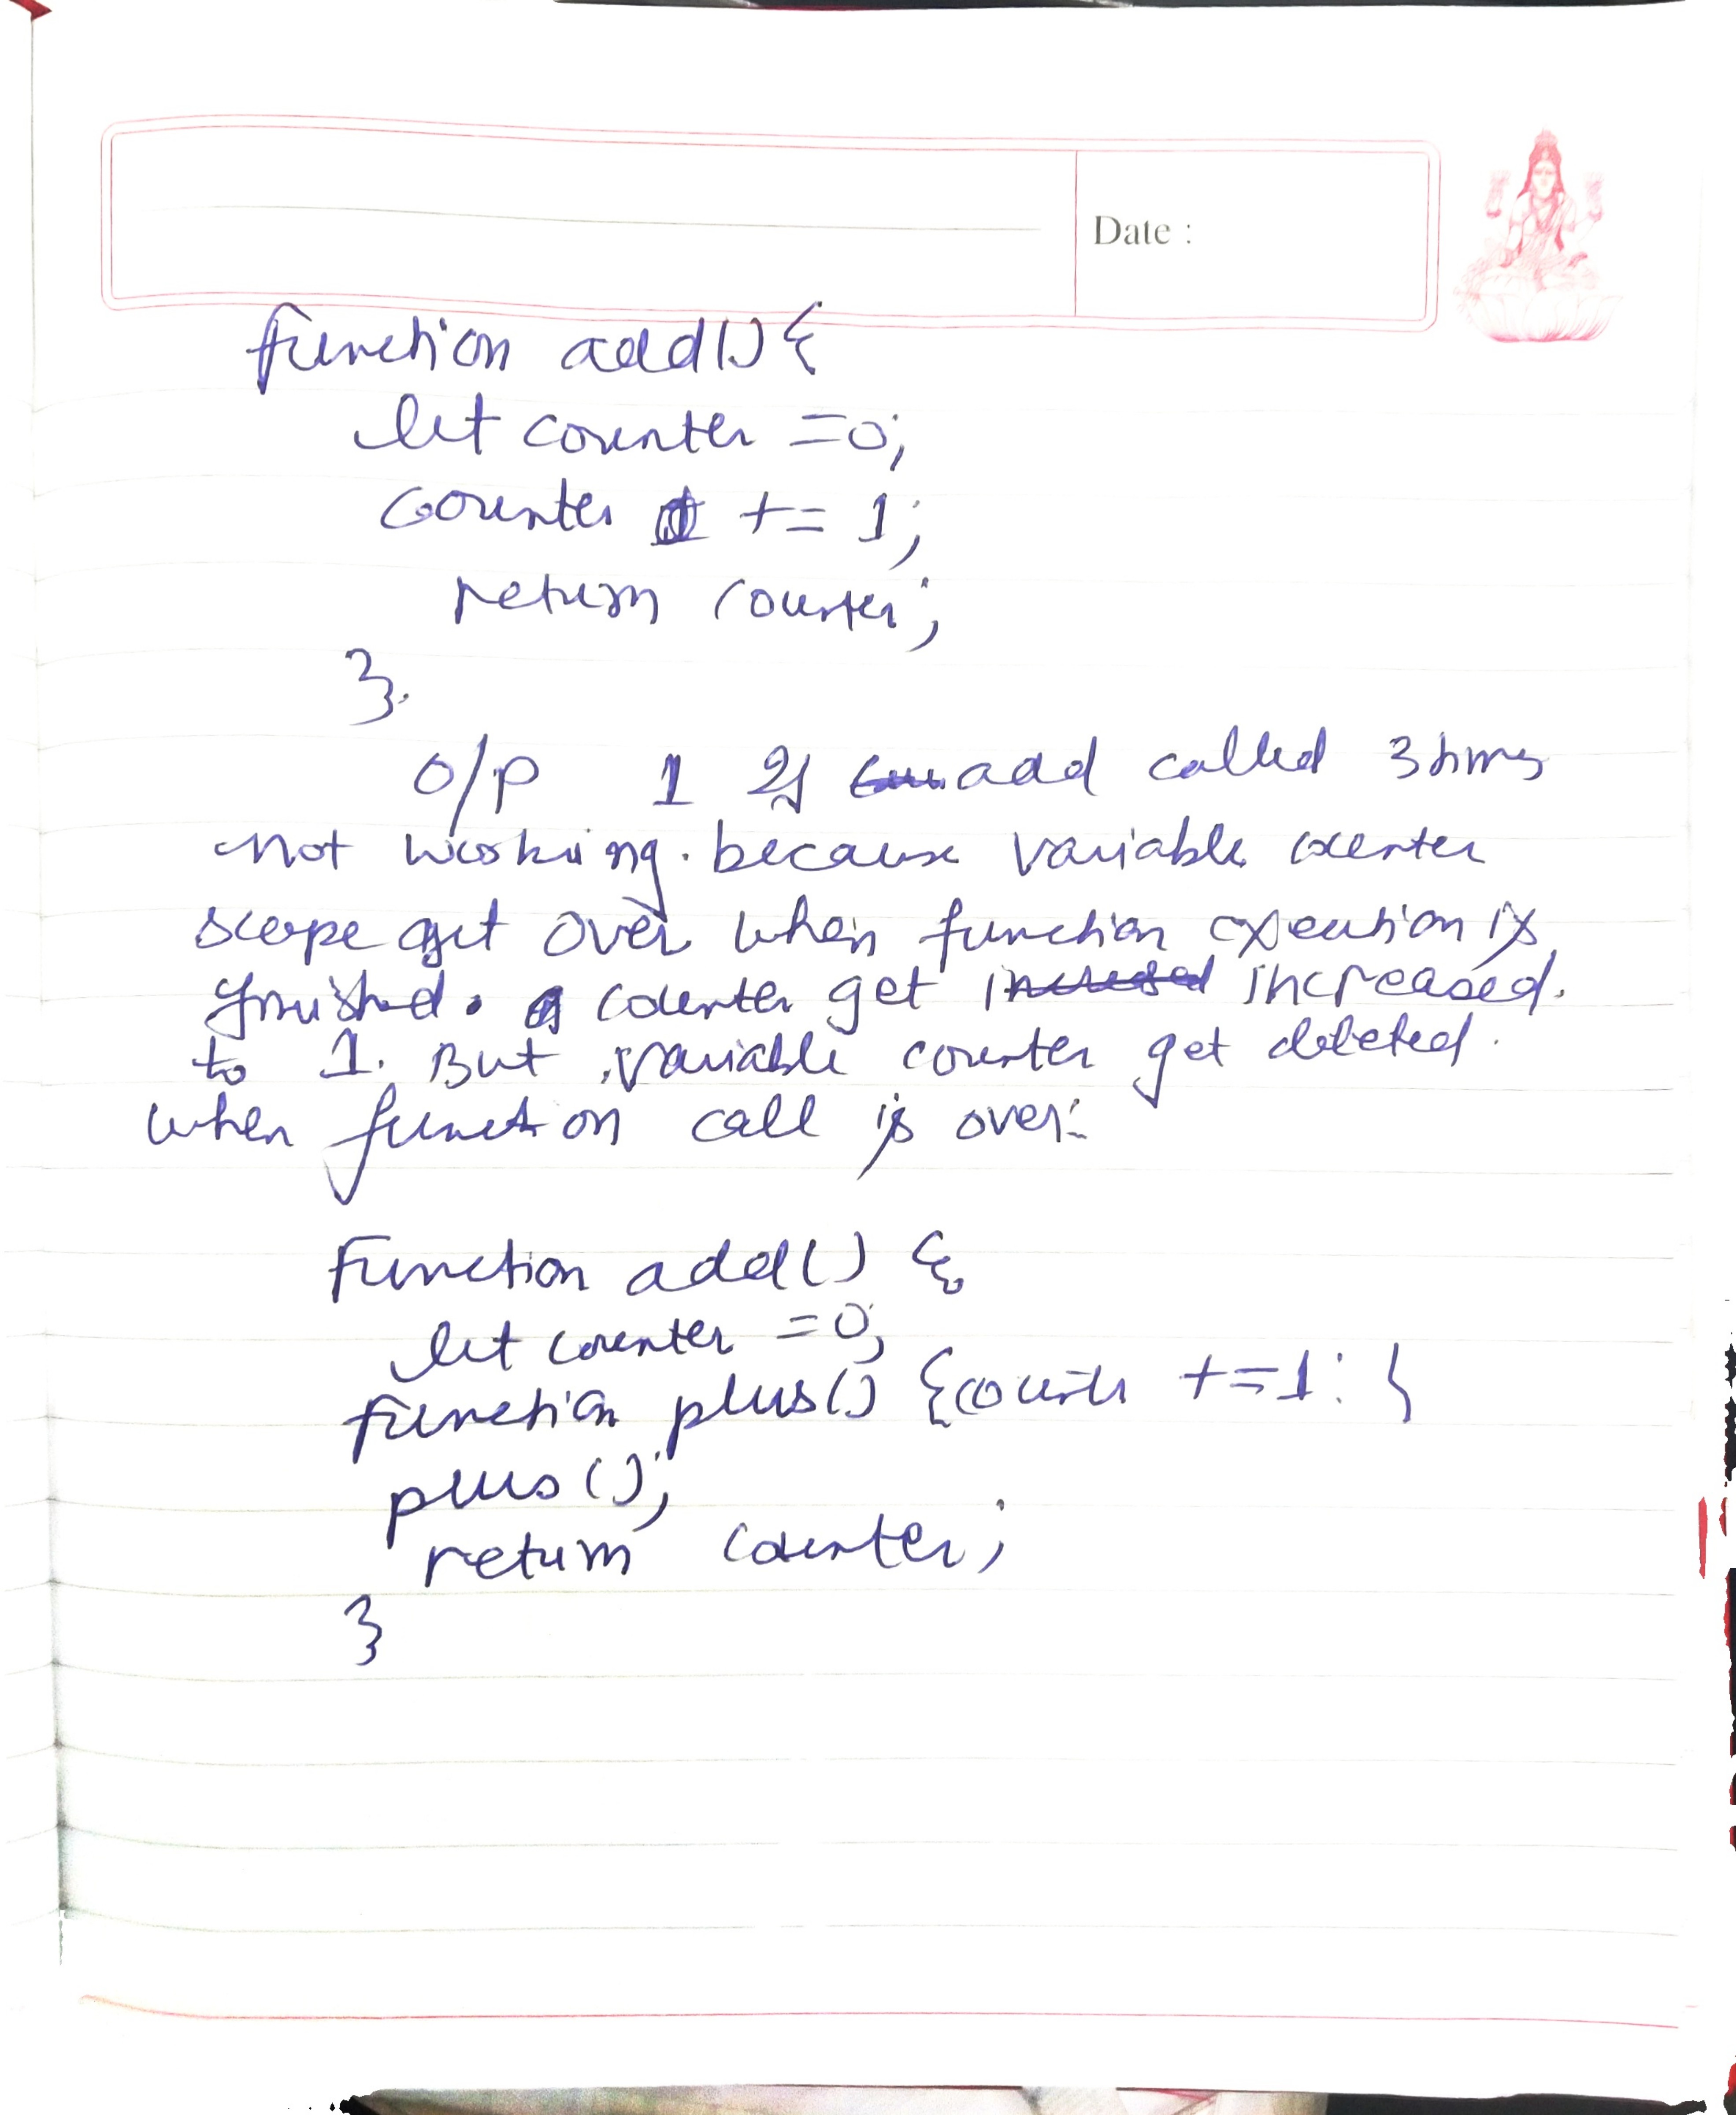 Date :
function add() {
let counter =0;
counter += 1;
return counter;
}.
o/p 1 if add called 3 times
not working. because variable counter
scope get over when function exeution is
finished. counter get increased.
to 1. But variable counter get deleted.
when function call is over.
Function add() {
let counter =0;
function plus() {counter +=1; }
plus();
return counter;
}